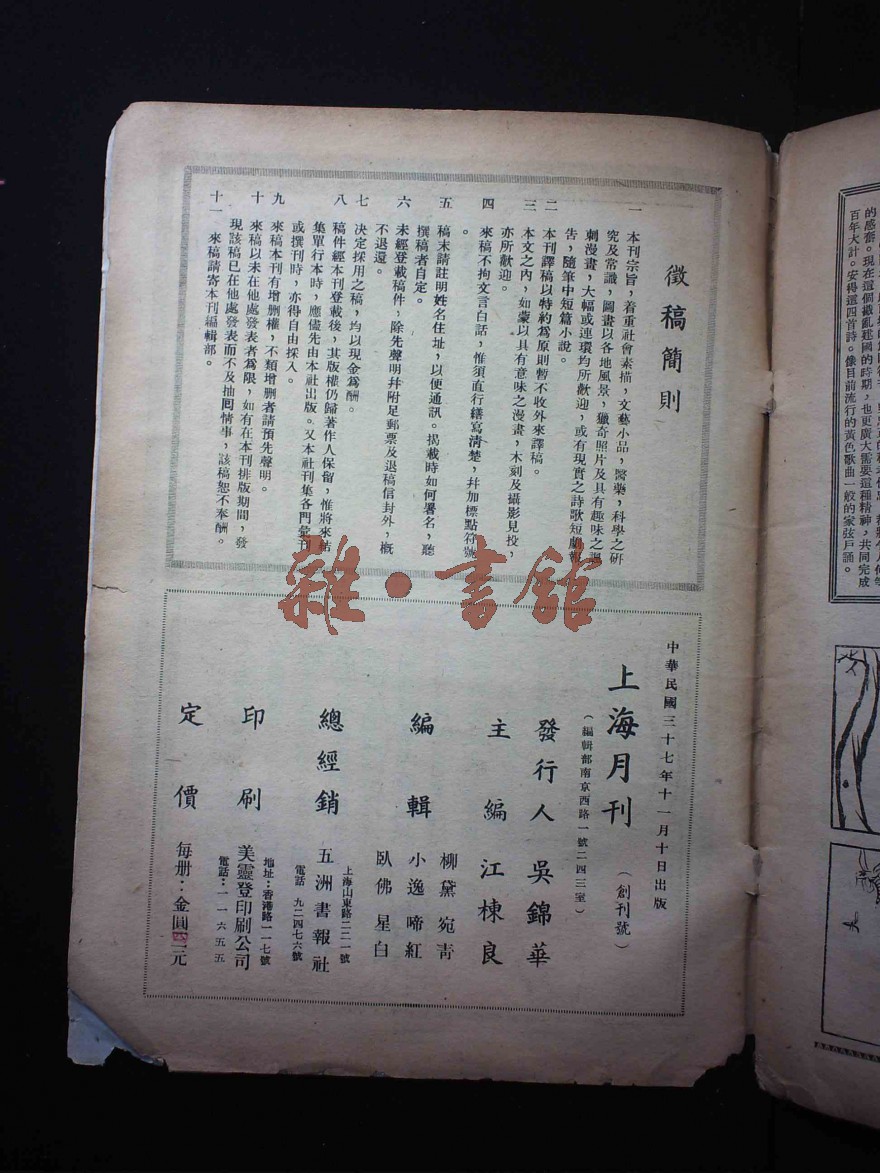 徵稿簡則
一　本刊宗旨，着重社會素描，文藝小品，醫藥，科學之硏
究及常識，圖畫以各地風景，獵奇照片及具有趣味之諷
刺漫畫，大幅或連環均所歡迎，或有現實之詩歌短劇報
告，隨筆中短篇小說。
二　本刊譯稿以特約爲原則暫不收外來譯稿。
三　本文之內，如蒙以具有意味之漫畫，木刻及攝影見投，
亦所歡迎。
四　來稿不拘文言白話，惟須直行繕寫清楚，幷加標點符號
。
五　稿末請註明姓名住址，以便通訊。揭載時如何署名，聽
撰稿者自定。
六　未經登載稿件，除先聲明幷附足郵票及退稿信封外，概
不退還。
七　决定採用之稿，均以現金爲酬。
八　稿件經本刊登載後，其版權仍歸著作人保留，惟將來結
集單行本時，應儘先由本社出版。又本社刊集各門彙刊
或撰刊時，亦得自由採入。
九　來稿本刊有增删權，不類增删者請預先聲明。
十　來稿以未在他處發表者爲限，如有在本刊排版期間，發
現該稿已在他處發表而不及抽囘情事，該稿恕不奉酬。
十一　來稿請寄本刊編輯部。
雜·書館
中華民國三十七年十一月十日出版
上海月刊（創刊號）
（編輯部南京西路一號二四三室）
發行人　吳錦華
主編　江棟良
編輯　柳黛　宛靑
小逸　啼紅
臥佛　星白
總經銷　五洲書報社
上海山東路二二一號
電話　九二四七六號
印刷　美靈登印刷公司
地址：香港路一一七號
電話：一一六五五
定價　每册：金圓　三元
的感奮。現在這個戡亂建國的時期，也更廣大需要這種精神，共同完成
百年大計。安得這四首詩。像目前流行的黃色歌曲一般的家弦戶誦。